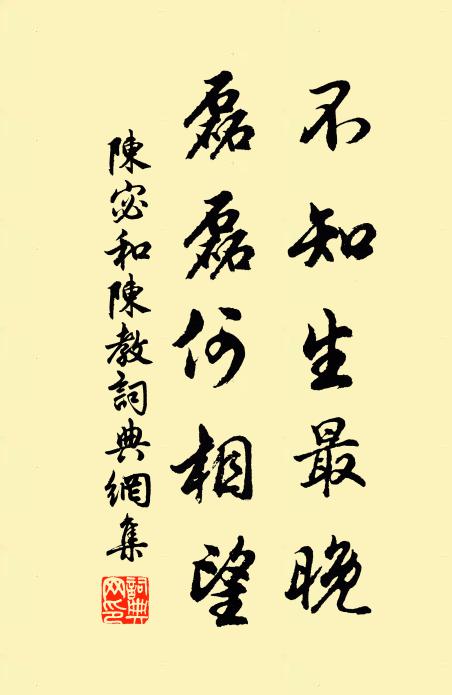 不知生最晚
磊磊何相望
陳宓和陳教詞典網集
詞典網印